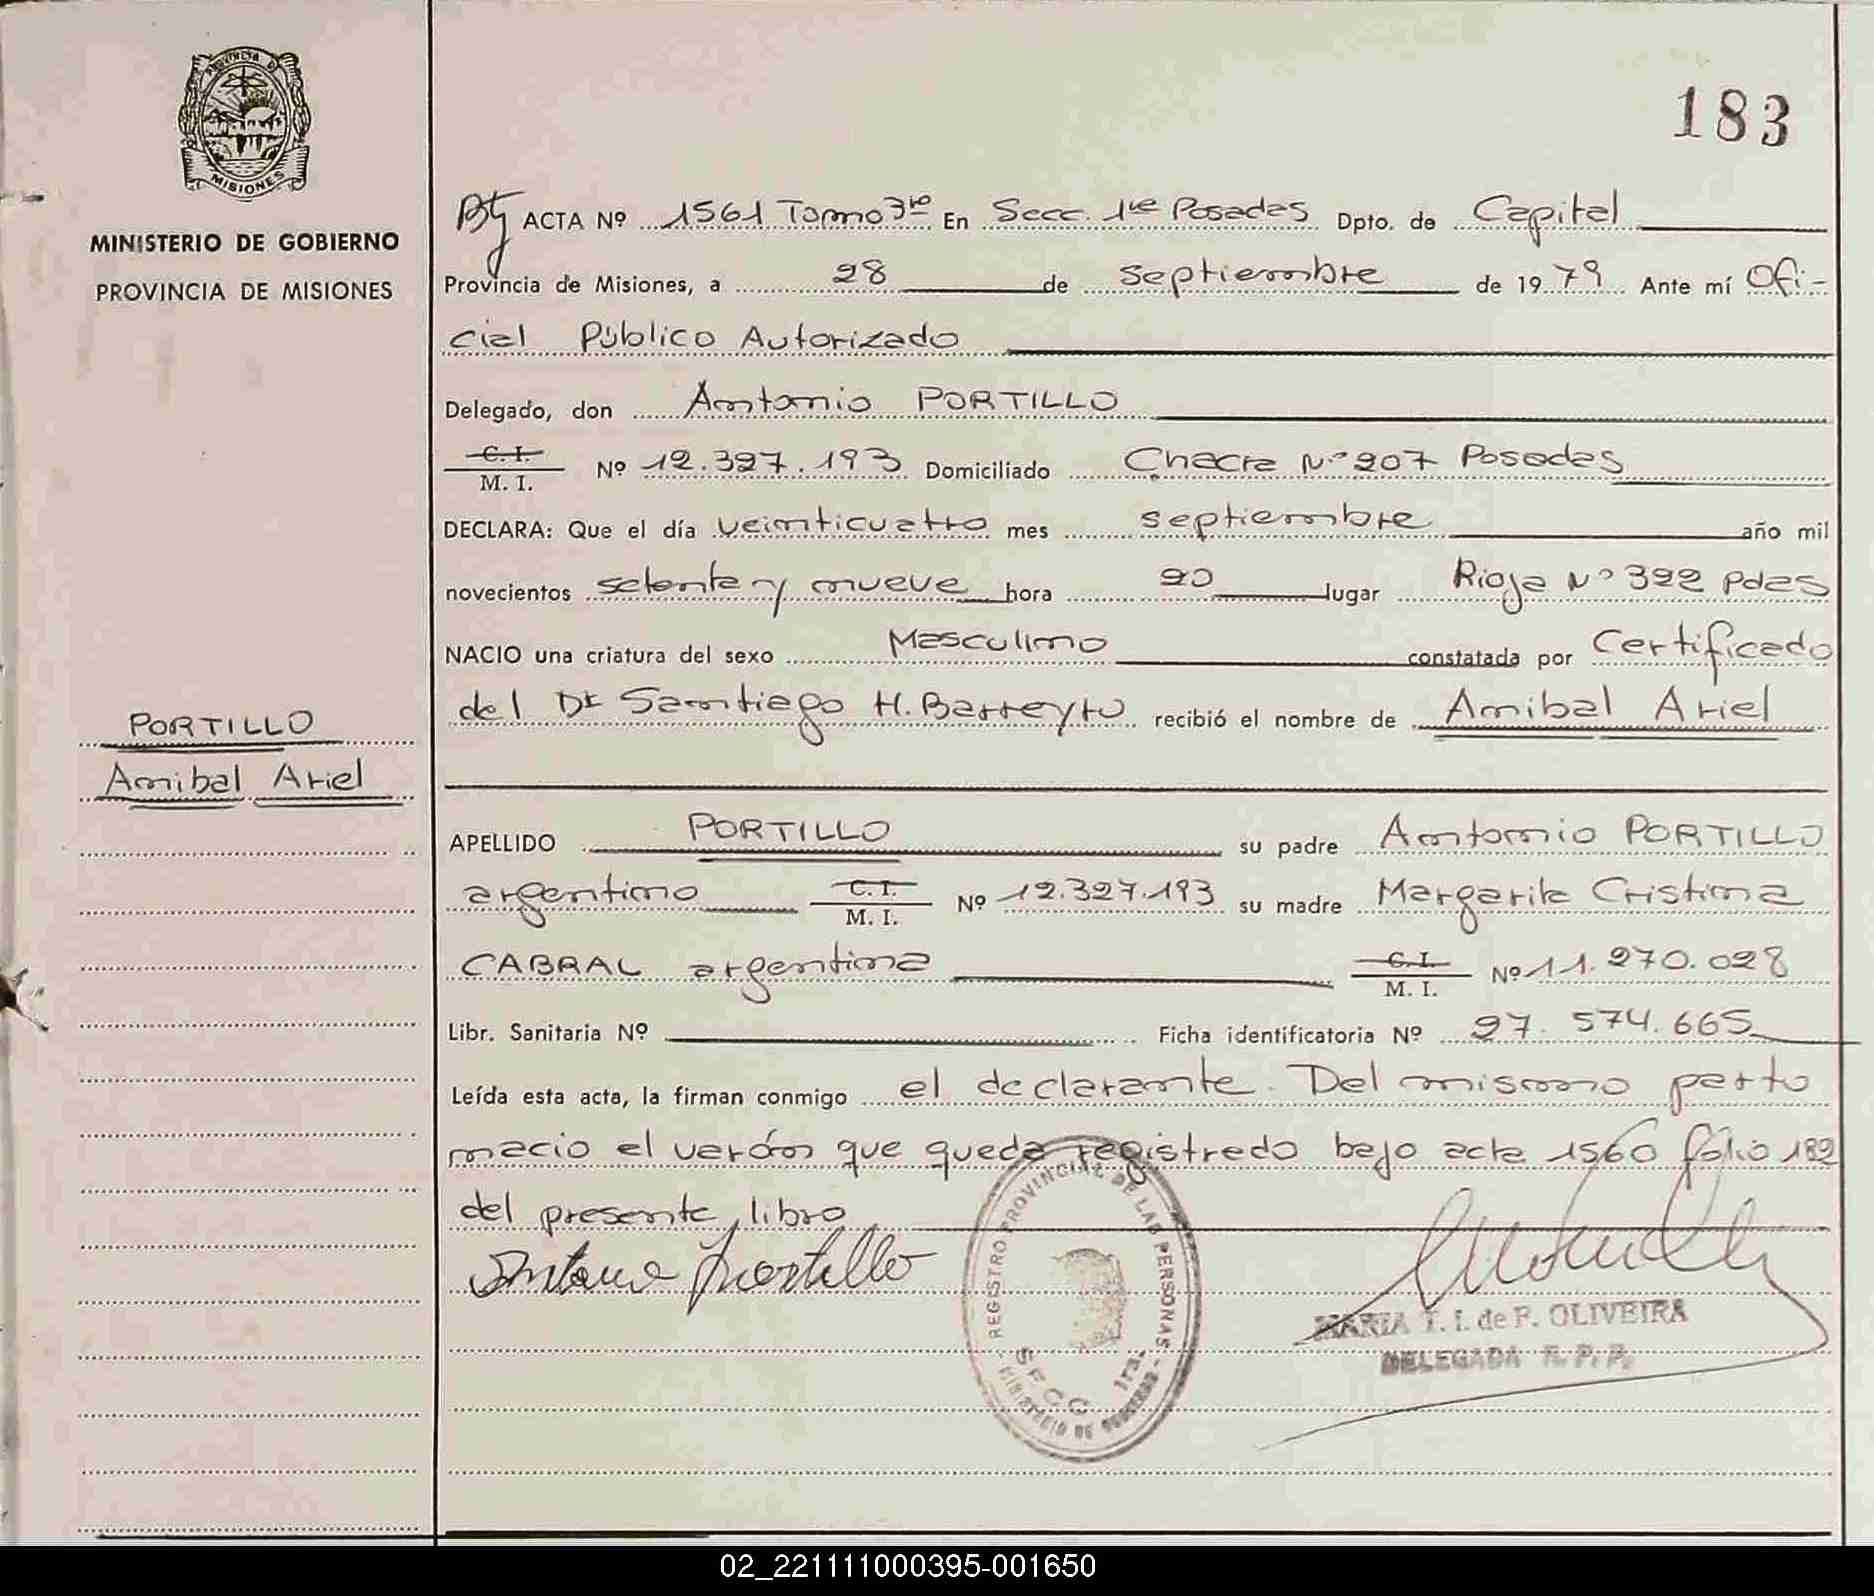 183
PROVINCIA DE
MISIONES
MINISTERIO DE GOBIERNO
PROVINCIA DE MISIONES
PORTILLO
Anibal Ariel
ACTA Nº 1561 Tomo 3ro En Secc. 1ra Posadas Dpto. de Capital
Provincia de Misiones, a 28 de septiembre de 1979 Ante mí Ofi-
cial Público Autorizado
Delegado, don Antonio PORTILLO
C. I.
M. I. Nº 12.327.193 Domiciliado Chacra Nº 207 Posadas
DECLARA: Que el día veinticuatro mes septiembre año mil
novecientos setenta y nueve hora 20 lugar Rioja Nº 322 Pdas
NACIO una criatura del sexo Masculino constatada por Certificado
del Dr Santiago H. Barreyro recibió el nombre de Anibal Ariel
APELLIDO PORTILLO su padre Antonio PORTILLO
argentino C. I. M. I. Nº 12.327.193 su madre Margarita Cristina
CABRAL argentina C. I. M. I. Nº 11.270.028
Libr. Sanitaria Nº Ficha identificatoria Nº 27.574.665
Leída esta acta, la firman conmigo el declarante. Del mismo parto
nacio el varón que queda registrado bajo acta 1560 fólio 182
del presente libro
Antonio Portillo
REGISTRO PROVINCIAL DE LAS PERSONAS
SECC. 1ra.
MINISTERIO DE GOBIERNO
MARIA T. I. de F. OLIVEIRA
DELEGADA R. P. P.
02_221111000395-001650